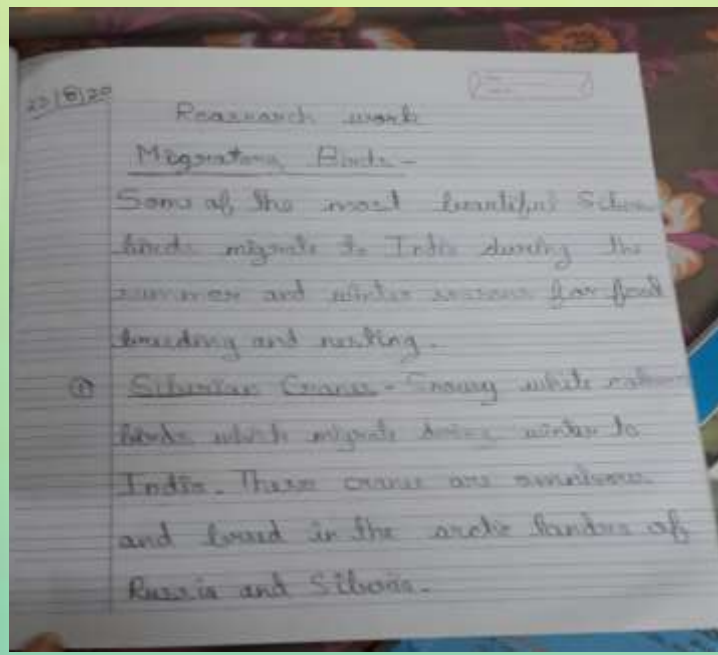 Reasearch work
Migratory Birds -
Some of the most beautiful
birds migrate to India during the
summer and winter seasons for food
breeding and nesting.
① Siberian Cranes - Snowy white
birds which migrate during winter to
India. These cranes are omnivores
and breed in the arctic tundra of
Russia and Siberia.